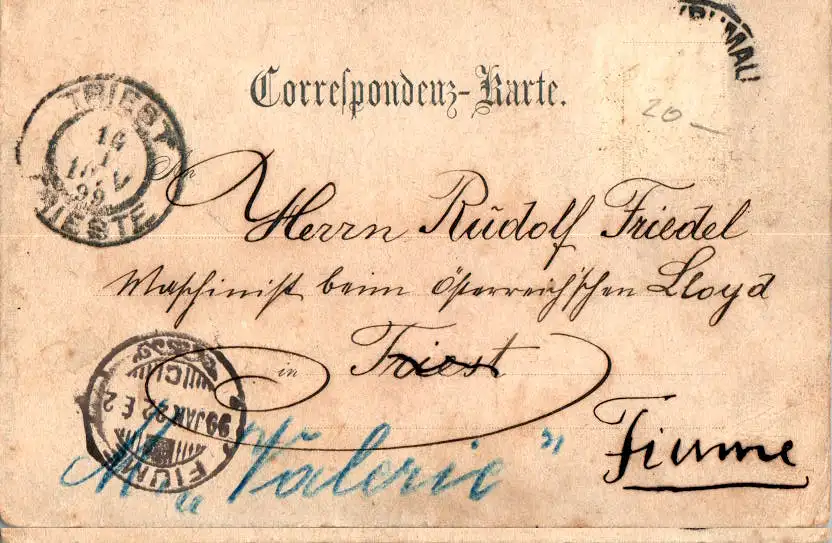 KRUMAU
Correspondenz-Karte.
20 —
TRIEST
TRIESTE
99
An
Herrn Rudolf Friedel
Maschinist beim österreich'schen Lloyd
in Triest
Fiume
99 JAN 22 E 2
FIUME
"Valerie"